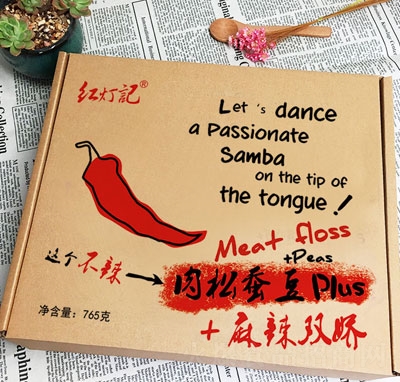 红灯記®
Let 's dance
a Passionate
Samba
on the tip of
the tongue!
Meat floss
+Peas
这个不辣
肉松蚕豆Plus
+麻辣双娇
净含量：765克